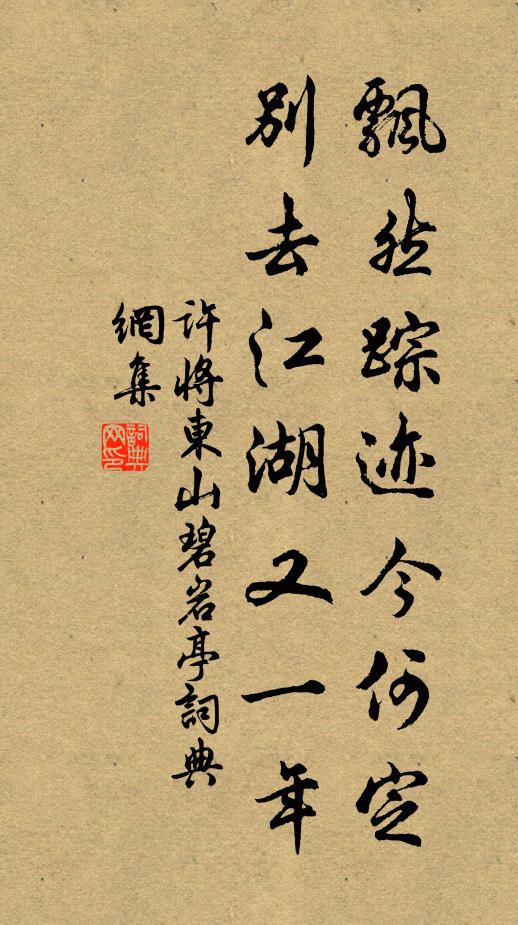 飄然踪迹今何定
別去江湖又一年
許將東山碧岩亭詞典
網集
詞典網印